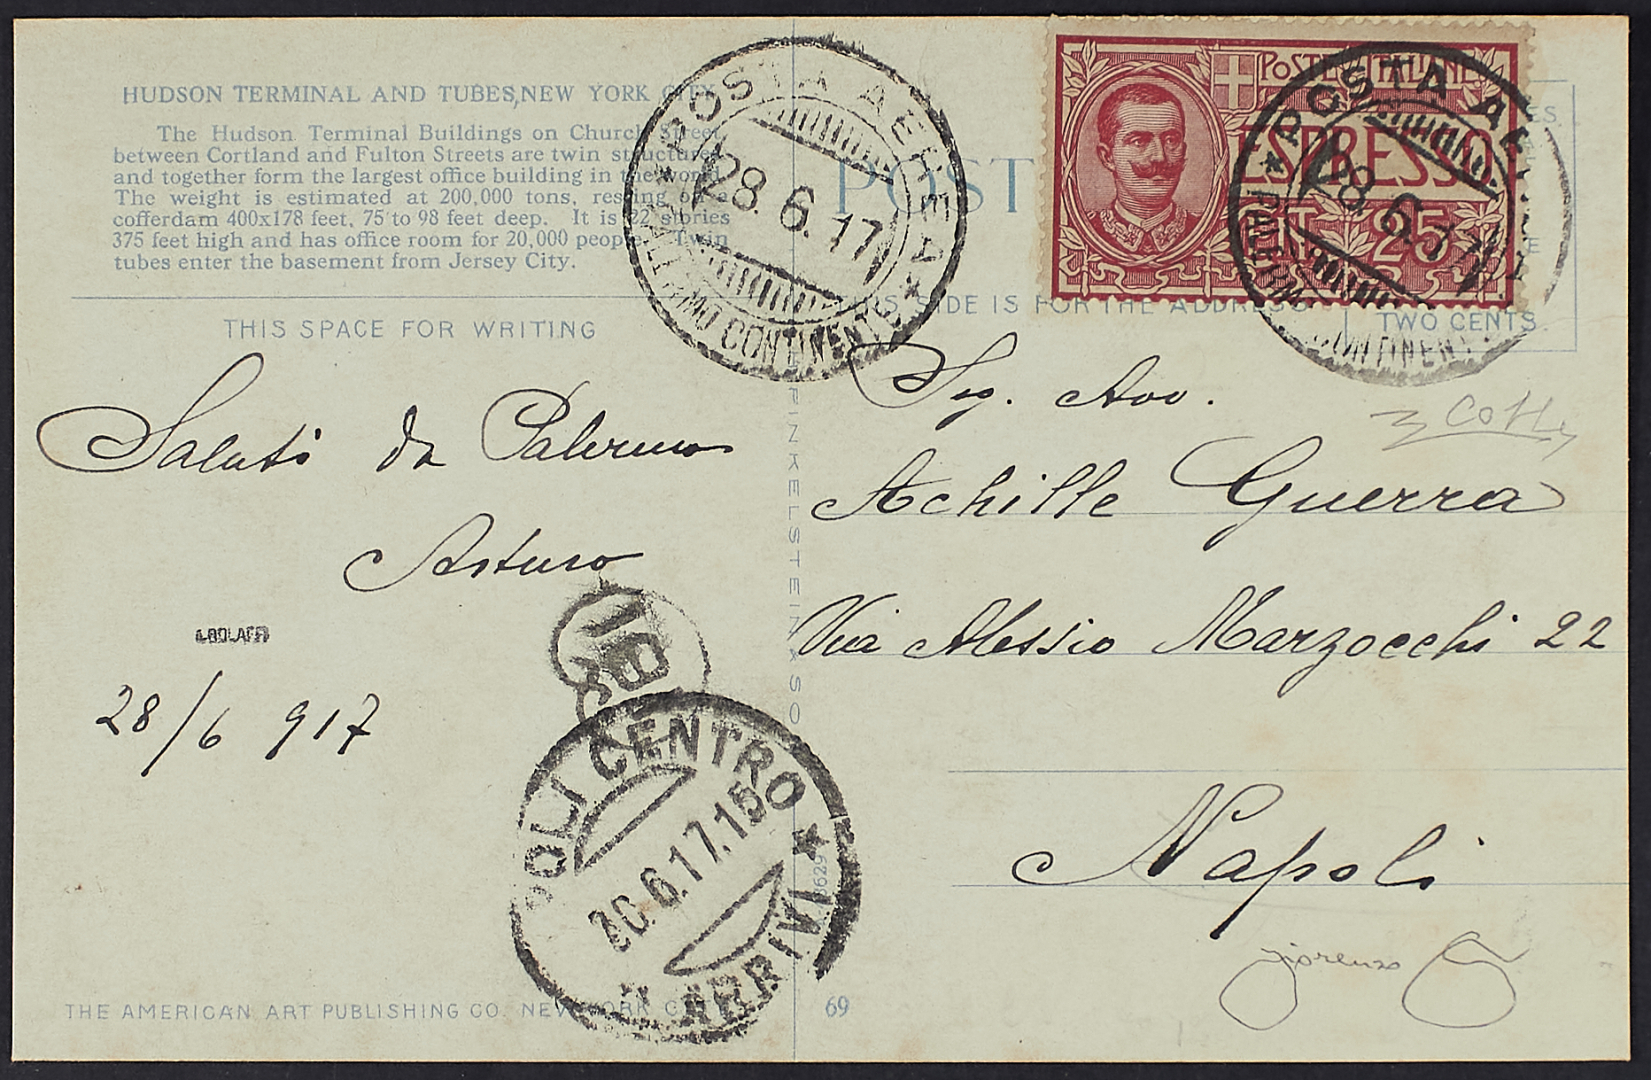 HUDSON TERMINAL AND TUBES, NEW YORK CITY.
The Hudson Terminal Buildings on Church Street,
between Cortland and Fulton Streets are twin structures
and together form the largest office building in the world.
The weight is estimated at 200,000 tons, resting on a
cofferdam 400x178 feet, 75 to 98 feet deep. It is 22 stories
375 feet high and has office room for 20,000 people. Twin
tubes enter the basement from Jersey City.
THIS SPACE FOR WRITING
Saluti da Palermo
Arturo
A.BOLAFFI
28/6 917
THE AMERICAN ART PUBLISHING CO. NEW YORK CITY
FINKELSTEIN & SON
69
★ POSTA AEREA ★
28.6.17
CONTINENTE
POST
SIDE IS FOR THE ADDRESS
TWO CENTS
POSTE ITALIANE
ESPRESSO
25
★ POSTA AE
28.6.17
CONTINENT
Sig. Avv.
Achille Guerra
Via Alessio Marzocchi 22
Napoli
POLI CENTRO ★
30.6.17.15
★ ARRIVI